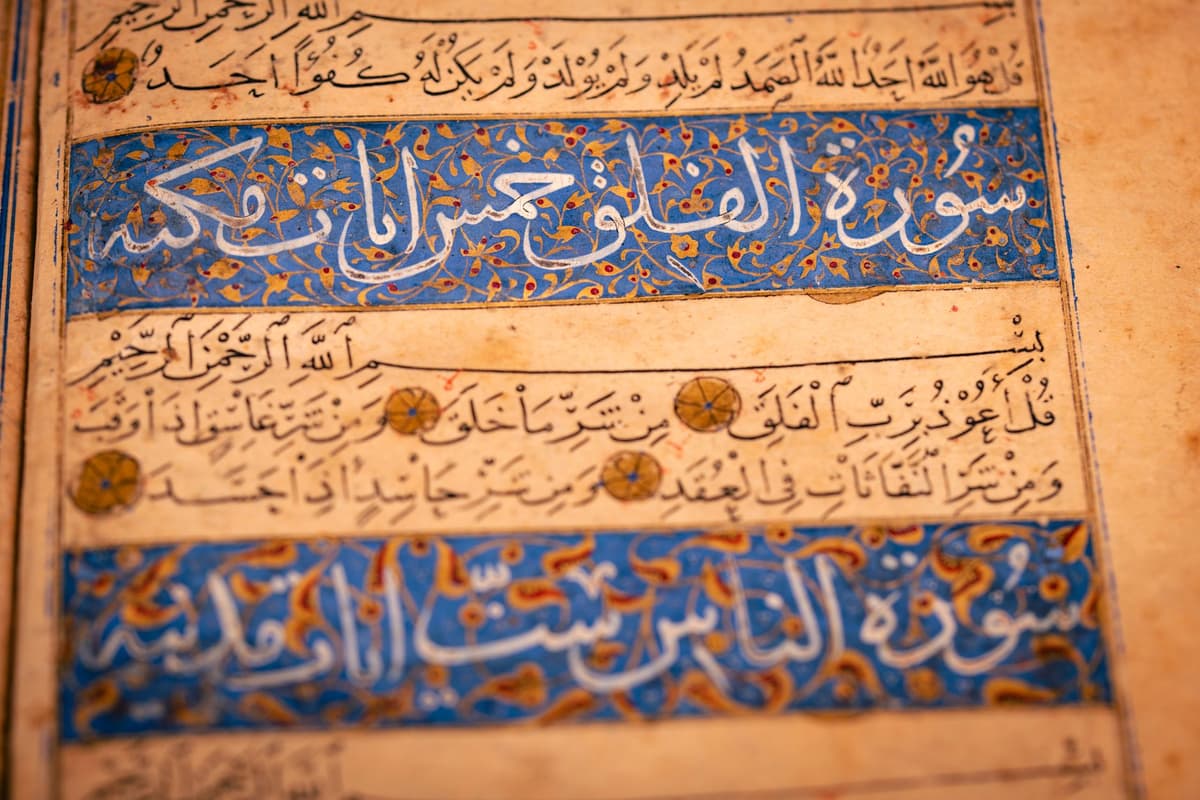 بسم الله الرحمن الرحيم
قُلْ هُوَ اللَّهُ اَحَدٌ اللَّهُ الصَّمَدُ لَمْ يَلِدْ وَلَمْ يُولَدْ وَلَمْ يَكُنْ لَهُ كُفُوًا اَحَدٌ
سُورة الفلق خمس ايات مكيه
بِسْمِ اللَّهِ الرَّحْمَنِ الرَّحِيْمِ
قُلْ أَعُوْذُ بِرَبِّ الْفَلَقِ مِنْ شَرِّ مَا خَلَقَ وَمِنْ شَرِّ غَاسِقٍ اِذَا وَقَبَ
وَمِنْ شَرِّ النَّفَّاثَاتِ فِي الْعُقَدِ وَمِنْ شَرِّ حَاسِدٍ اِذَا حَسَدَ
سُورة الناس ستّ ايات مدنيه